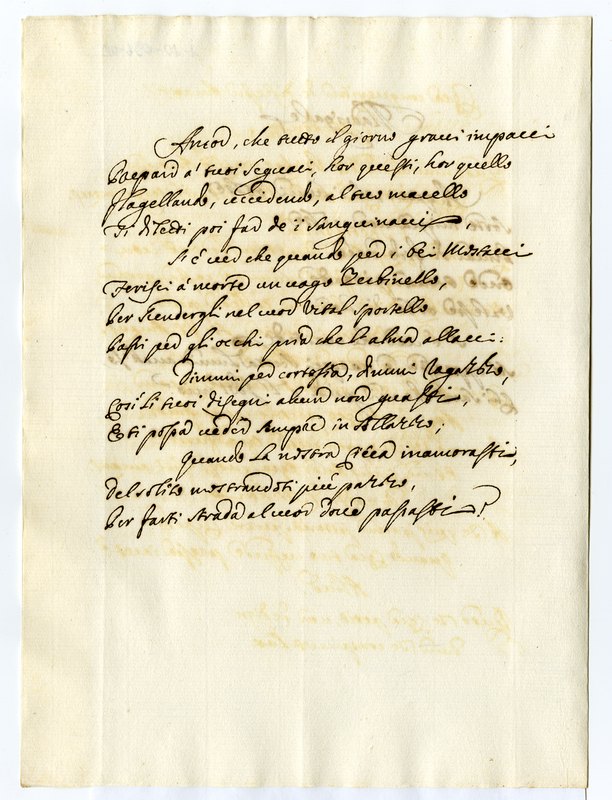 Amor, che tutto il giorno gravi impacci
Prepari a' tuoi seguaci, hor questi, hor quello
Flagellando, uccidendo, al tuo macello
Ti diletti poi far de i sanguinacci,
Si è ver che quando per i bei Mostacci
Ferisci a' morte un vago Zerbinello,
Per scendergli nel cuor vital sportello
Passi per gli occhi pria che l'alma allacci:
Dimmi per cortesia, dimmi ragazzo,
Così li tuoi disegni alcun non guasti,
E ti possa veder sempre in sollazzo;
Quando la nostra Cieca inamorasti,
Del solito mostrandoti più pazzo,
Per farti strada al cuor dove passasti?